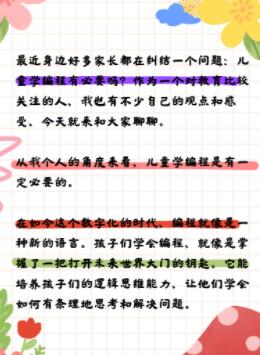 最近身边好多家长都在纠结一个问题：儿
童学编程有必要吗？作为一个对教育比较
关注的人，我也有不少自己的观点和感
受，今天就来和大家聊聊。
从我个人的角度来看，儿童学编程是有一
定必要的。
在如今这个数字化的时代，编程就像是一
种新的语言。孩子们学会编程，就像是掌
握了一把打开未来世界大门的钥匙。它能
培养孩子们的逻辑思维能力，让他们学会
如何有条理地思考和解决问题。